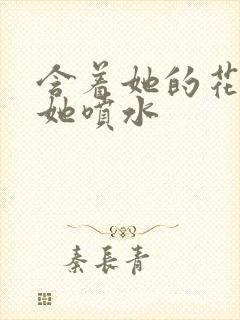 含着她的花
她喷水
秦长青